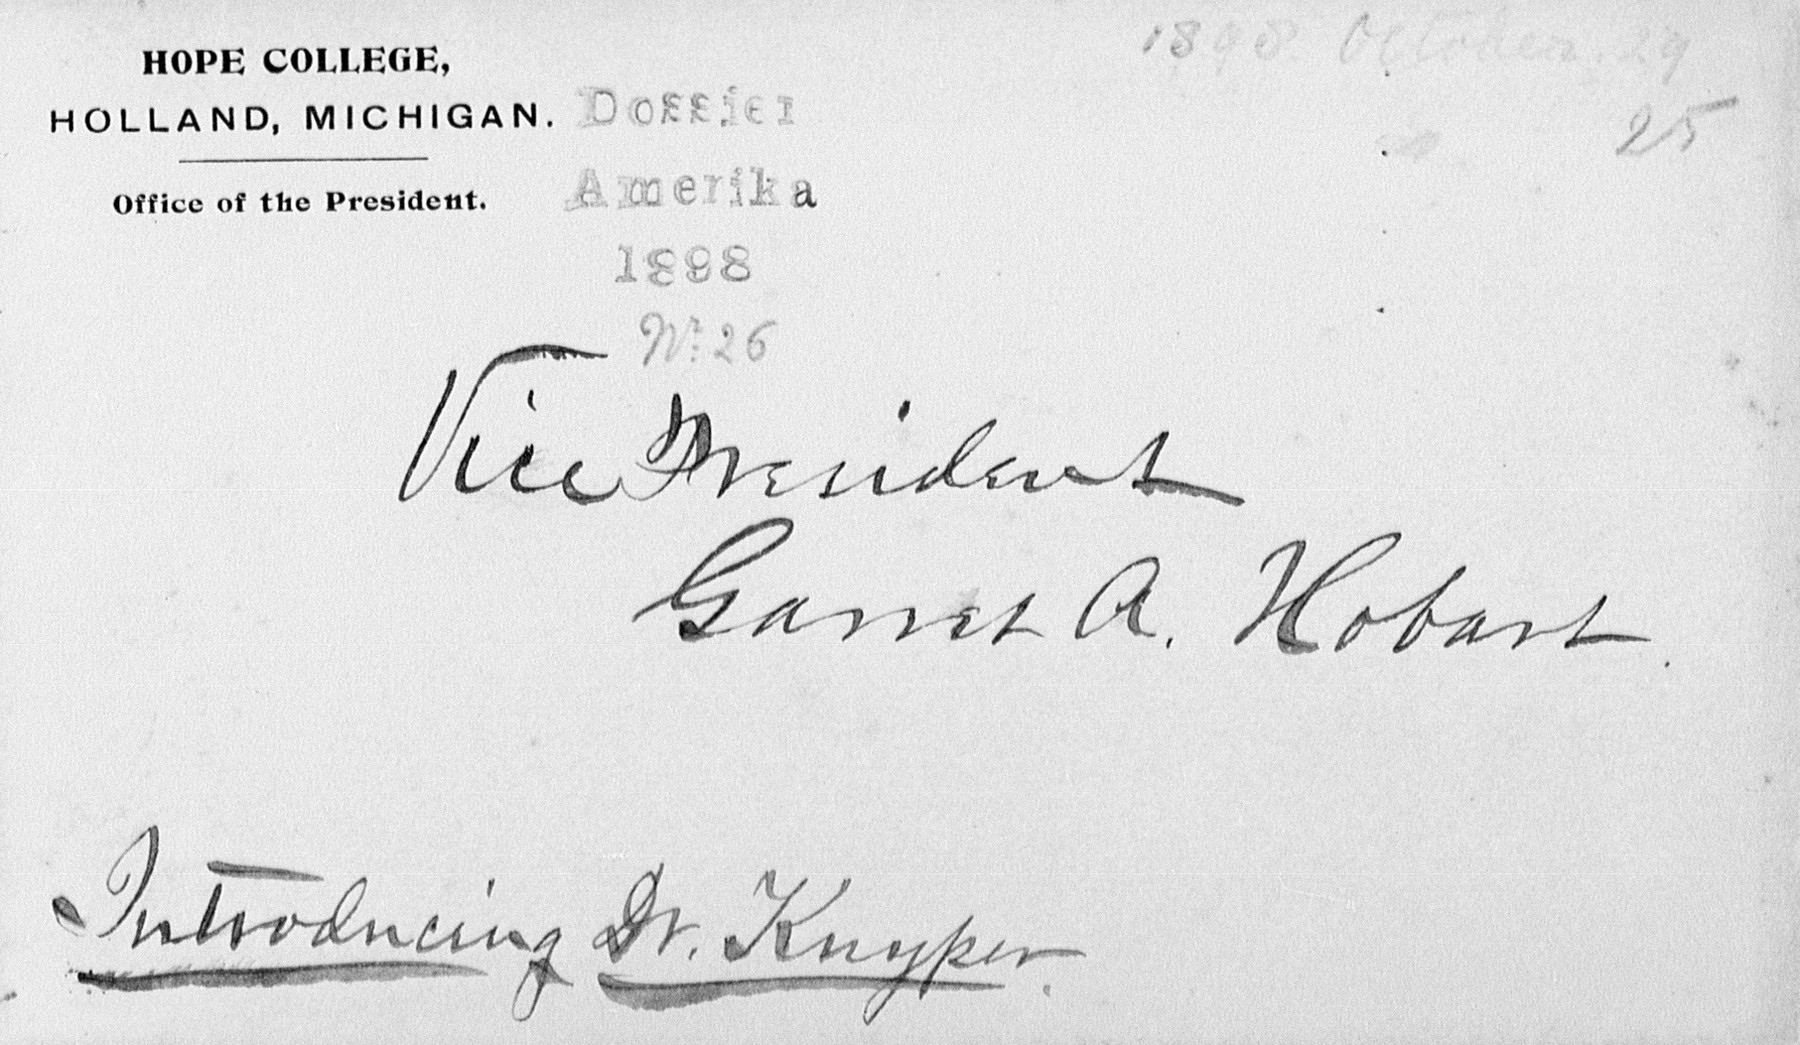 HOPE COLLEGE,
HOLLAND, MICHIGAN.
Office of the President.
Dossier
Amerika
1898
Nr. 26
1898 October. 29
25
Vice President
Garret A. Hobart.
Introducing Dr. Kuyper.